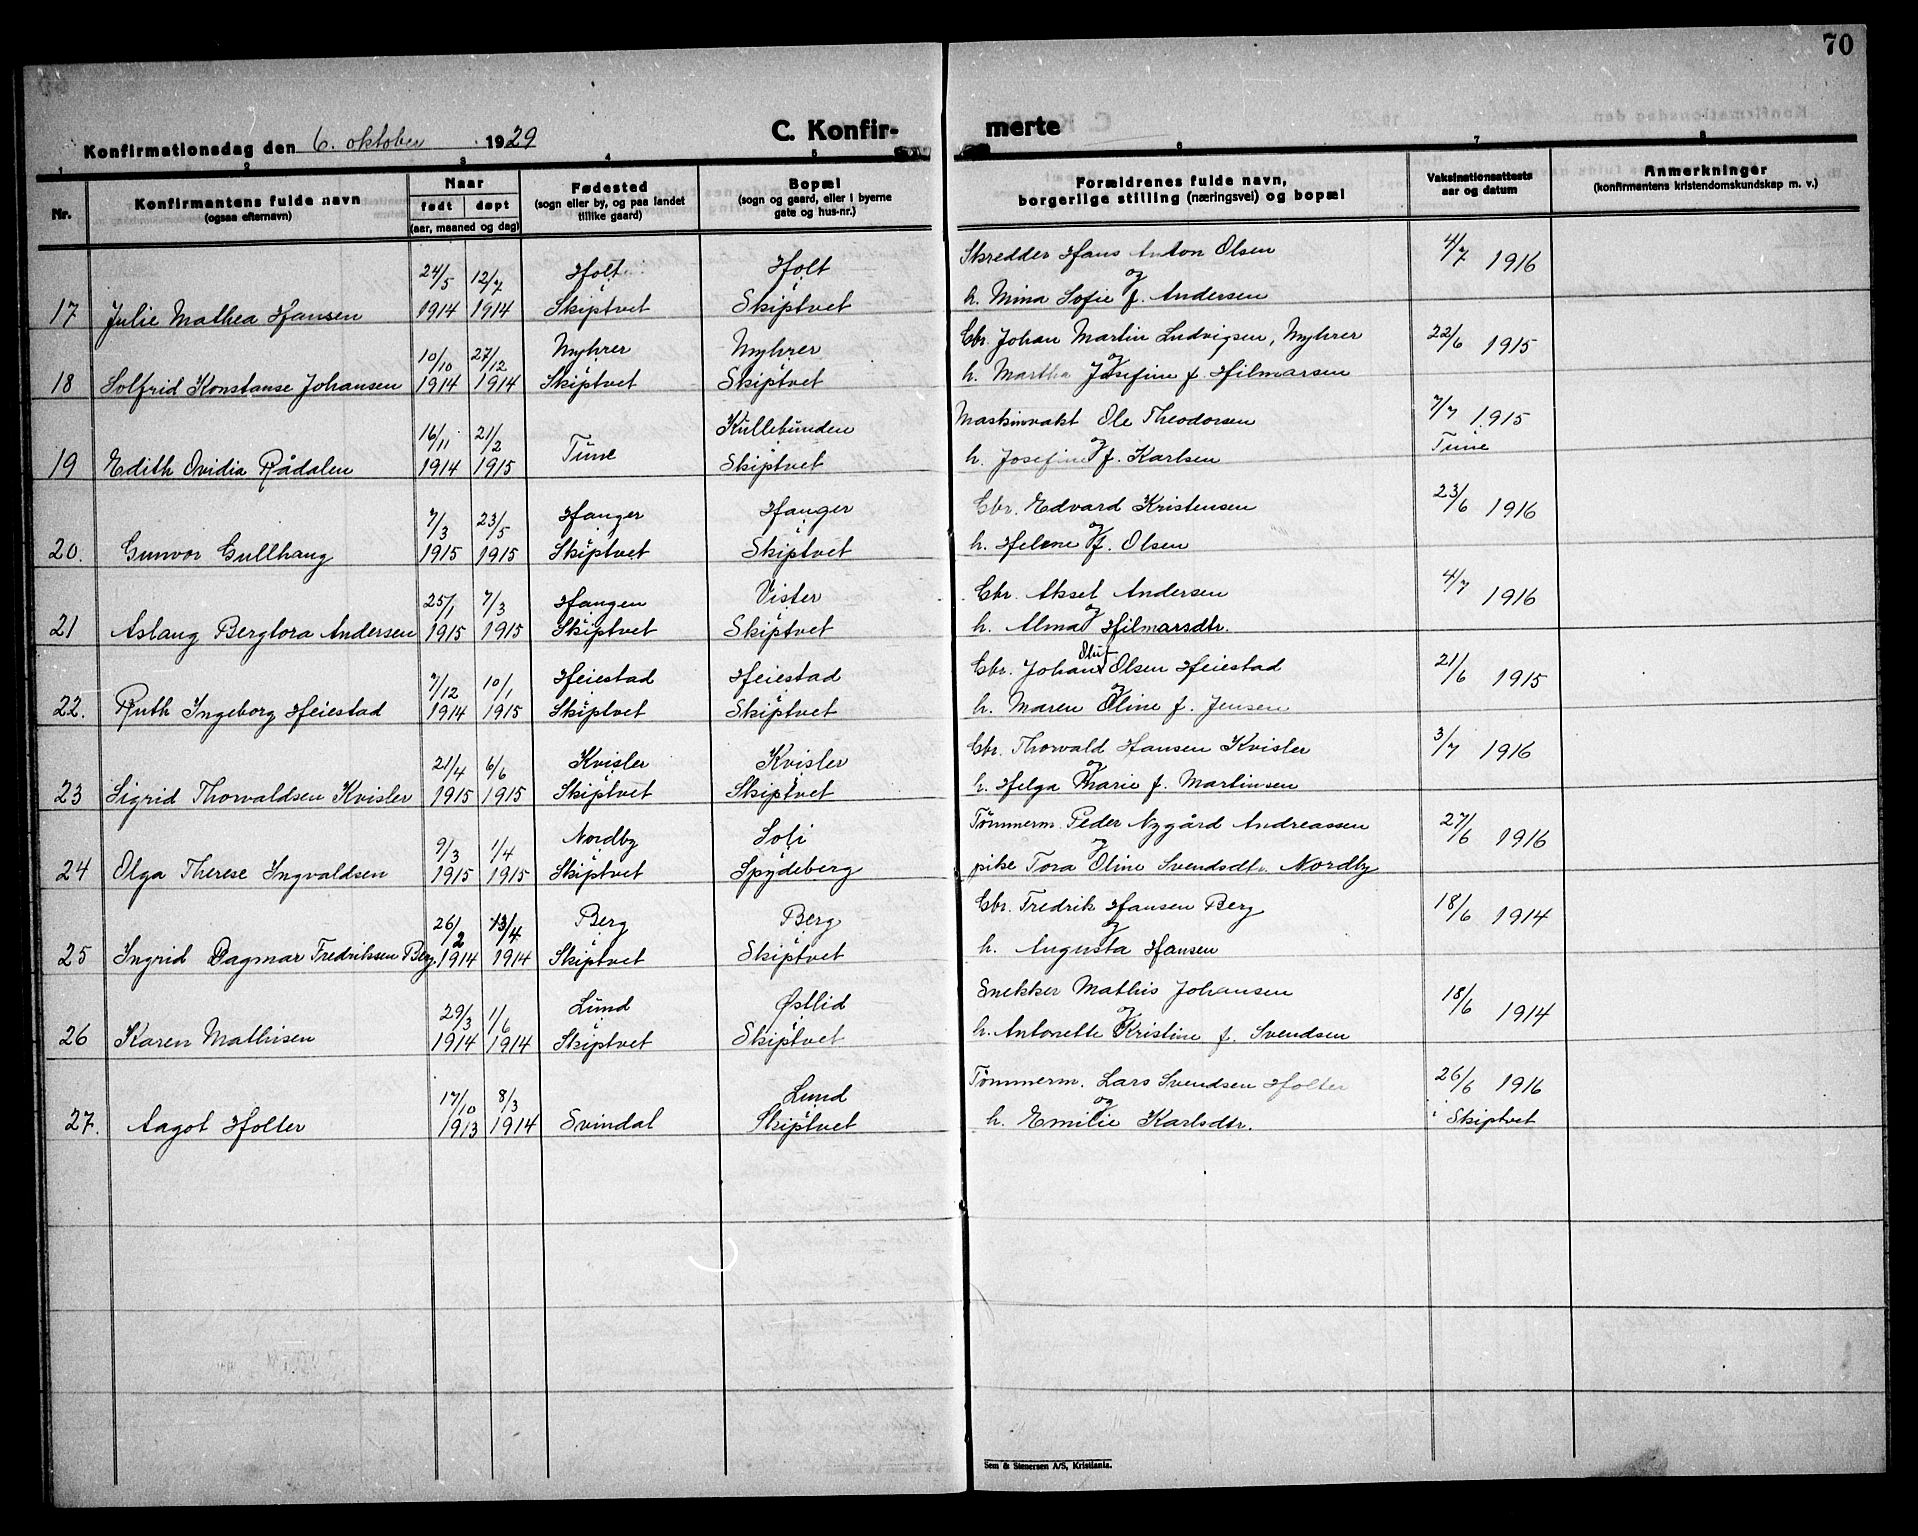 70
Konfirmationsdag den 6. oktober 1929
C. Konfir- merte
1 2 3 4 5 6 7 8
Nr.
Konfirmantens fulde navn
(ogsaa efternavn)
Naar
født døpt
(aar, maaned og dag)
Fødested
(sogn eller by, og paa landet
tillike gaard)
Bopæl
(sogn og gaard, eller i byerne
gate og hus-nr.)
Forældrenes fulde navn,
borgerlige stilling (næringsvei) og bopæl
Vaksinationsattests
aar og datum
Anmerkninger
(konfirmantens kristendomskundskap m. v.)
24/5 12/7 Holt Holt Skredder Hans Anton Olsen 4/7 1916
og
17 Julie Mathea Hansen 1914 1914 Skiptvet Skiptvet h. Mina Sofie f. Andersen
10/10 27/12 Myhrer Myhrer Gbr. Johan Martin Ludvigsen, Myhrer 22/6 1915
og
18 Solfrid Konstanse Johansen 1914 1914 Skiptvet Skiptvet h. Martha Josefine f. Hilmarsen
16/11 21/2 Tune Kullebunden Maskinvakt Ole Theodorsen 7/7 1915
og Tune
19 Edith Ovidia Rådalen 1914 1915 Skiptvet h. Josefine f. Karlsen
7/3 23/5 Hanger Hanger Gbr. Edvard Kristensen 23/6 1916
og
20. Gunvor Gullhaug 1915 1915 Skiptvet Skiptvet h. Helene f. Olsen
25/1 7/3 Haugen Vister Gbr. Aksel Andersen 4/7 1916
og
21 Aslaug Bergtora Andersen 1915 1915 Skiptvet Skiptvet h. Alma Hilmarsdtr.
Oluf
7/12 10/1 Heiestad Heiestad Gbr. Johan Olsen Heiestad 21/6 1915
og
22. Ruth Ingeborg Heiestad 1914 1915 Skiptvet Skiptvet h. Maren Oline f. Jensen
21/4 6/6 Kvisler Kvisler Gbr. Thorvald Hansen Kvisler 3/7 1916
og
23 Sigrid Thorvaldsen Kvisler 1915 1915 Skiptvet Skiptvet h. Helga Marie f. Martinsen
9/3 1/4 Nordby Soli Tømmerm. Peder Nygård Andreassen 27/6 1916
og
24 Olga Therese Ingvaldsen 1915 1915 Skiptvet Spydeberg pike Tora Oline Svendsdtr. Nordby
26/2 13/4 Berg Berg Gbr. Fredrik Hansen Berg 18/6 1914
og
25 Ingrid Dagmar Fredriksen Berg. 1914 1914 Skiptvet Skiptvet h. Augusta Hansen
29/3 1/6 Lund Østlid Snekker Mathis Johansen 18/6 1914
og
26 Karen Mathisen 1914 1914 Skiptvet Skiptvet h. Antonette Kristine f. Svendsen
17/10 8/3 Lund Tømmerm. Lars Svendsen Holter 26/6 1916
og
27. Aagot Holter 1913 1914 Svindal Skiptvet h. Emilie Karlsdtr. i Skiptvet
Sem & Stenersen A/S, Kristiania.